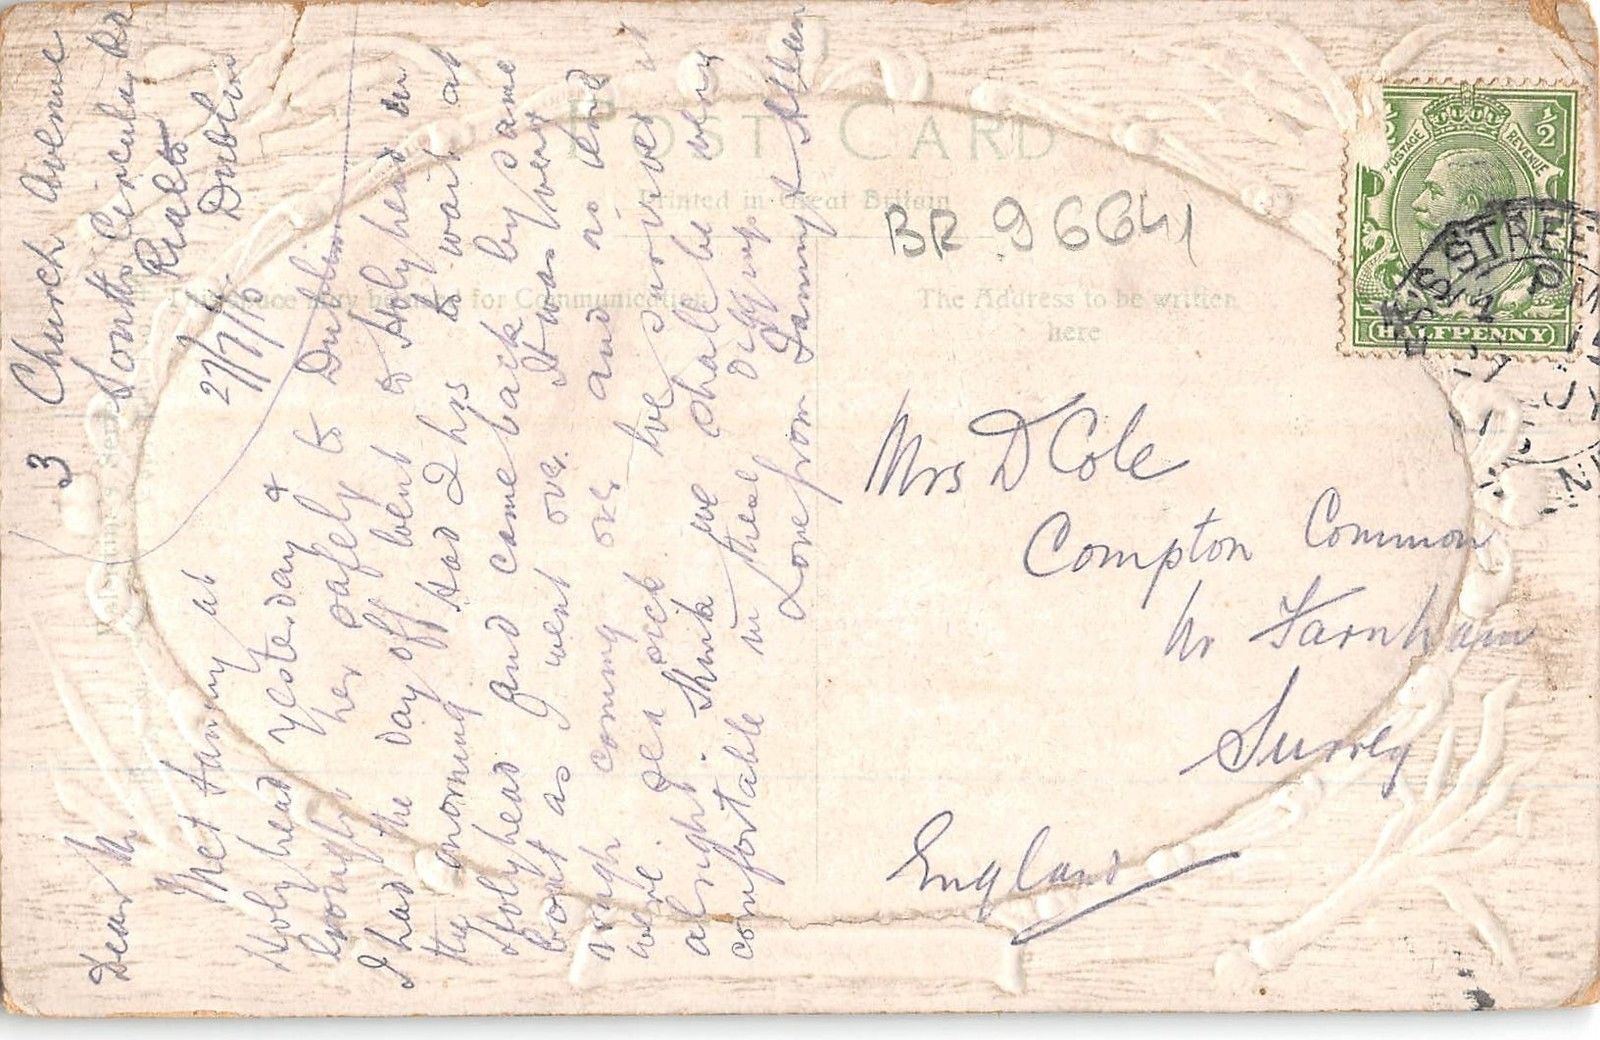 3 Church Avenue
South Circular Rd
Rialto
Dublin
27/7/15
Dear M
Met Fanny at
Holyhead yesterday &
brought her safely to Dublin
I had the day off went to Holyhead in
the morning Had 2 hrs to wait at
Holyhead and came back by same
boat as I went over. It was very
rough coming over and no end
were sea sick We survived it
alright. Think we shall be very
comfortable in these Diggings
Love from Fanny &
POST CARD
Printed in Great Britain
This Space may be used for Communication
The Address to be written
here
BR 96641
POSTAGE REVENUE
½ ½
HALFPENNY
STREET
Mrs D Cole
Compton Common
Nr Farnham
Surrey
England